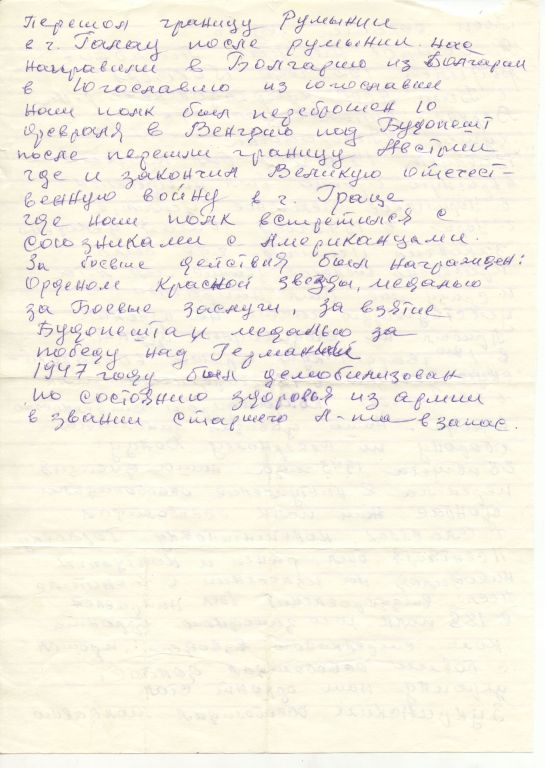 Перешол границу Румынии
в г. Галац после румынии нас
направили в Болгарию из Болгарии
в Югославию из югославии
наш полк был переброшен 10
февраля в Венгрию под Будопешт
после перешли границу Австрии
где и закончил Великую отечест-
венную войну в г. Граце
где наш полк встретился с
союзниками с Американцами.
За боевые действия был награжден:
Орденом Красной звезды, медалью
за Боевые заслуги, за взятие
Будопешта и медалью за
победу над Германией
1947 году был демобилизован
по состоянию здоровья из армии
в звании старшего л-та в запас.